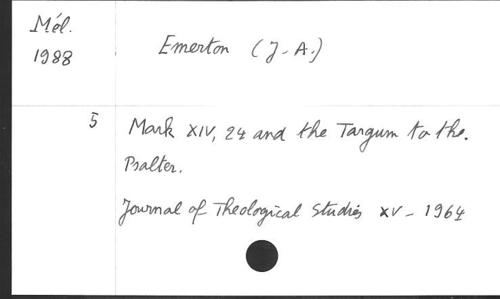 Mél.
1988
Emerton (J-A.)
5
Mark XIV, 24 and the Targum to the.
Psalter.
Journal of Theological Studies XV - 1964